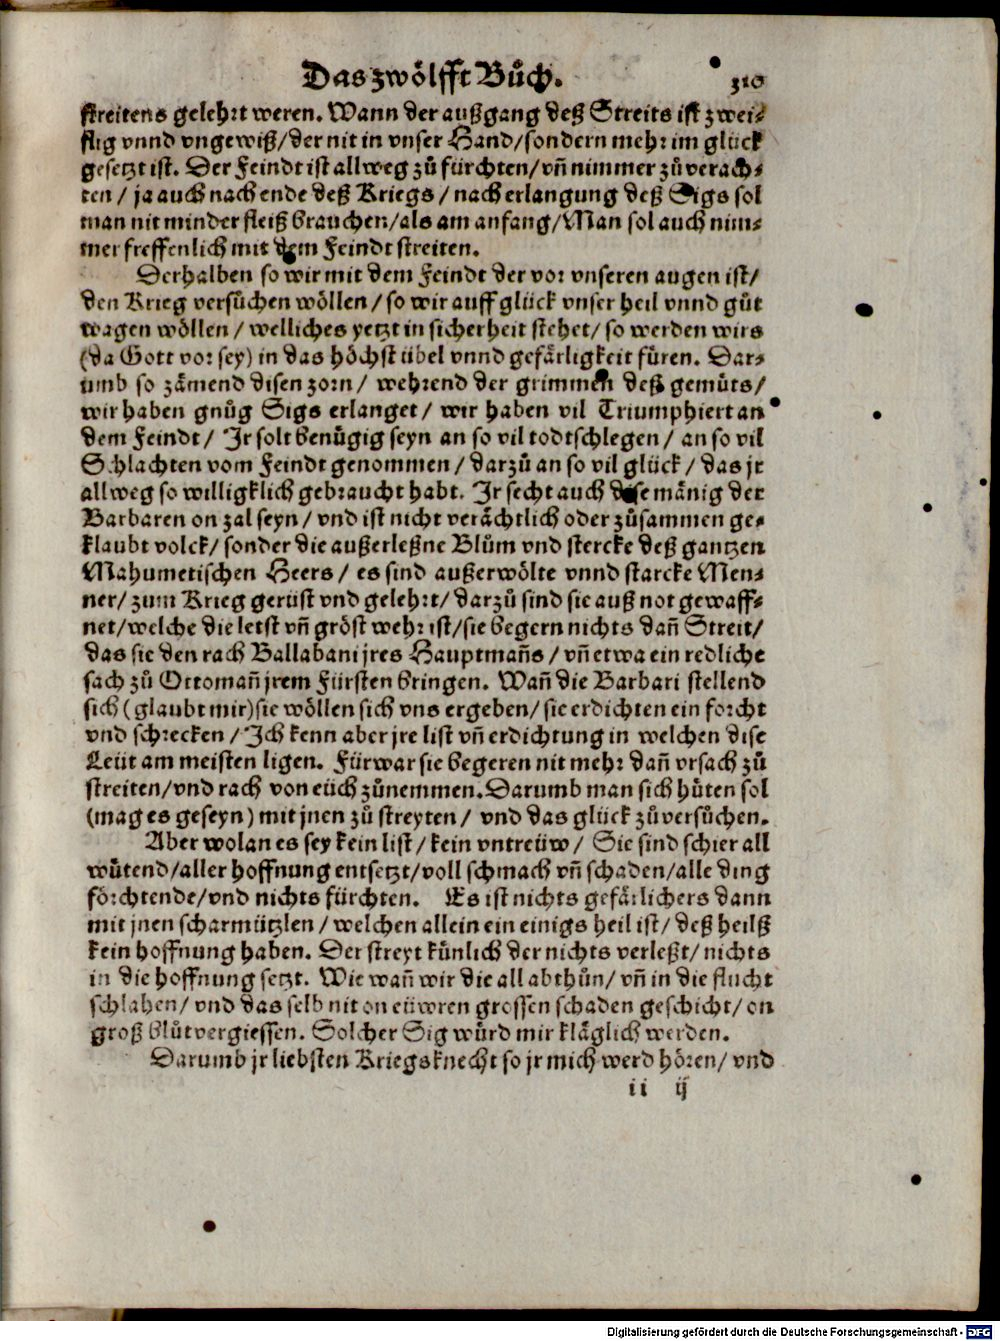 Das zwölfft Bůch. 310
streitens gelehrt weren. Wann der außgang deß Streits ist zwei⸗
flig vnnd vngewiß/der nit in vnser Hand/sondern mehr im glück
gesetzt ist. Der Feindt ist allweg zů fürchten/vñ nimmer zů verach⸗
ten / ja auch nach ende deß Kriegs / nach erlangung deß Sigs sol
man nit minder fleiß brauchen/als am anfang/Man sol auch nim⸗
mer freffenlich mit dem Feindt streiten.
Derhalben so wir mit dem Feindt der vor vnseren augen ist/
den Krieg versůchen wöllen / so wir auff glück vnser heil vnnd gůt
wagen wöllen / welliches yetzt in sicherheit stehet/ so werden wirs
(da Gott vor sey) in das höchst übel vnnd gefärligkeit füren. Dar⸗
umb so zämend disen zorn / wehrend der grimmen deß gemüts/
wir haben gnůg Sigs erlanget / wir haben vil Triumphiert an
dem Feindt / Jr solt benügig seyn an so vil todtschlegen / an so vil
Schlachten vom Feindt genommen / darzů an so vil glück / das jr
allweg so willigklich gebraucht habt. Jr secht auch dise mänig der
Barbaren on zal seyn / vnd ist nicht verächtlich oder zůsammen ge⸗
klaubt volck/ sonder die außerleßne Blům vnd stercke deß gantzen
Mahumetischen Heers / es sind außerwölte vnnd starcke Men⸗
ner/ zum Krieg gerüst vnd gelehrt/ darzů sind sie auß not gewaff⸗
net/welche die letst vñ gröst wehr ist/sie begern nichts dañ Streit/
das sie den rach Ballabani jres Hauptmañs / vñ etwa ein redliche
sach zů Ottomañ jrem Fürsten bringen. Wañ die Barbari stellend
sich ( glaubt mir)sie wöllen sich vns ergeben/ sie erdichten ein forcht
vnd schrecken / Jch kenn aber jre list vñ erdichtung in welchen dise
Leüt am meisten ligen. Fürwar sie begeren nit mehr dañ vrsach zů
streiten/vnd rach von eüch zůnemmen. Darumb man sich hüten sol
(mag es geseyn) mit jnen zů streyten / vnd das glück zů versůchen.
Aber wolan es sey kein list / kein vntreüw / Sie sind schier all
wütend/aller hoffnung entsetzt/voll schmach vñ schaden/alle ding
förchtende/vnd nichts fürchten. Es ist nichts gefärlichers dann
mit jnen scharmützlen / welchen allein ein einigs heil ist/ deß heilß
kein hoffnung haben. Der streyt künlich der nichts verleßt/ nichts
in die hoffnung setzt. Wie wañ wir die all abthůn/ vñ in die flucht
schlahen/ vnd das selb nit on eüwren grossen schaden geschicht/ on
groß blůtvergiessen. Solcher Sig würd mir kläglich werden.
Darumb jr liebsten Kriegsknecht so jr mich werd hören/ vnd
ii ij
Digitalisierung gefördert durch die Deutsche Forschungsgemeinschaft - DFG